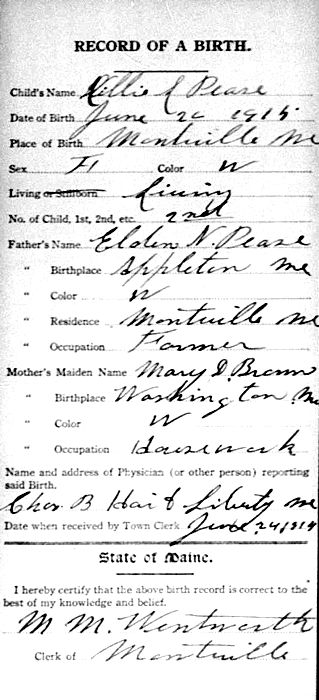 RECORD OF A BIRTH.
Child's Name Pease
Date of Birth June 20 1915
Place of Birth Montville Me
Sex F Color W
Living or Stillborn Living
No. of Child, 1st, 2nd, etc. 2nd
Father's Name Elden N. Pease
" Birthplace Appleton Me
" Color W
" Residence Montville Me
" Occupation Farmer
Mother's Maiden Name Mary D. Brown
" Birthplace Washington Me
" Color W
" Occupation Housework
Name and address of Physician (or other person) reporting
said Birth.
Chas. B Liberty Me
Date when received by Town Clerk June 24,
State of Maine.
I hereby certify that the above birth record is correct to the
best of my knowledge and belief.
M. M. Wentworth
Clerk of Montville